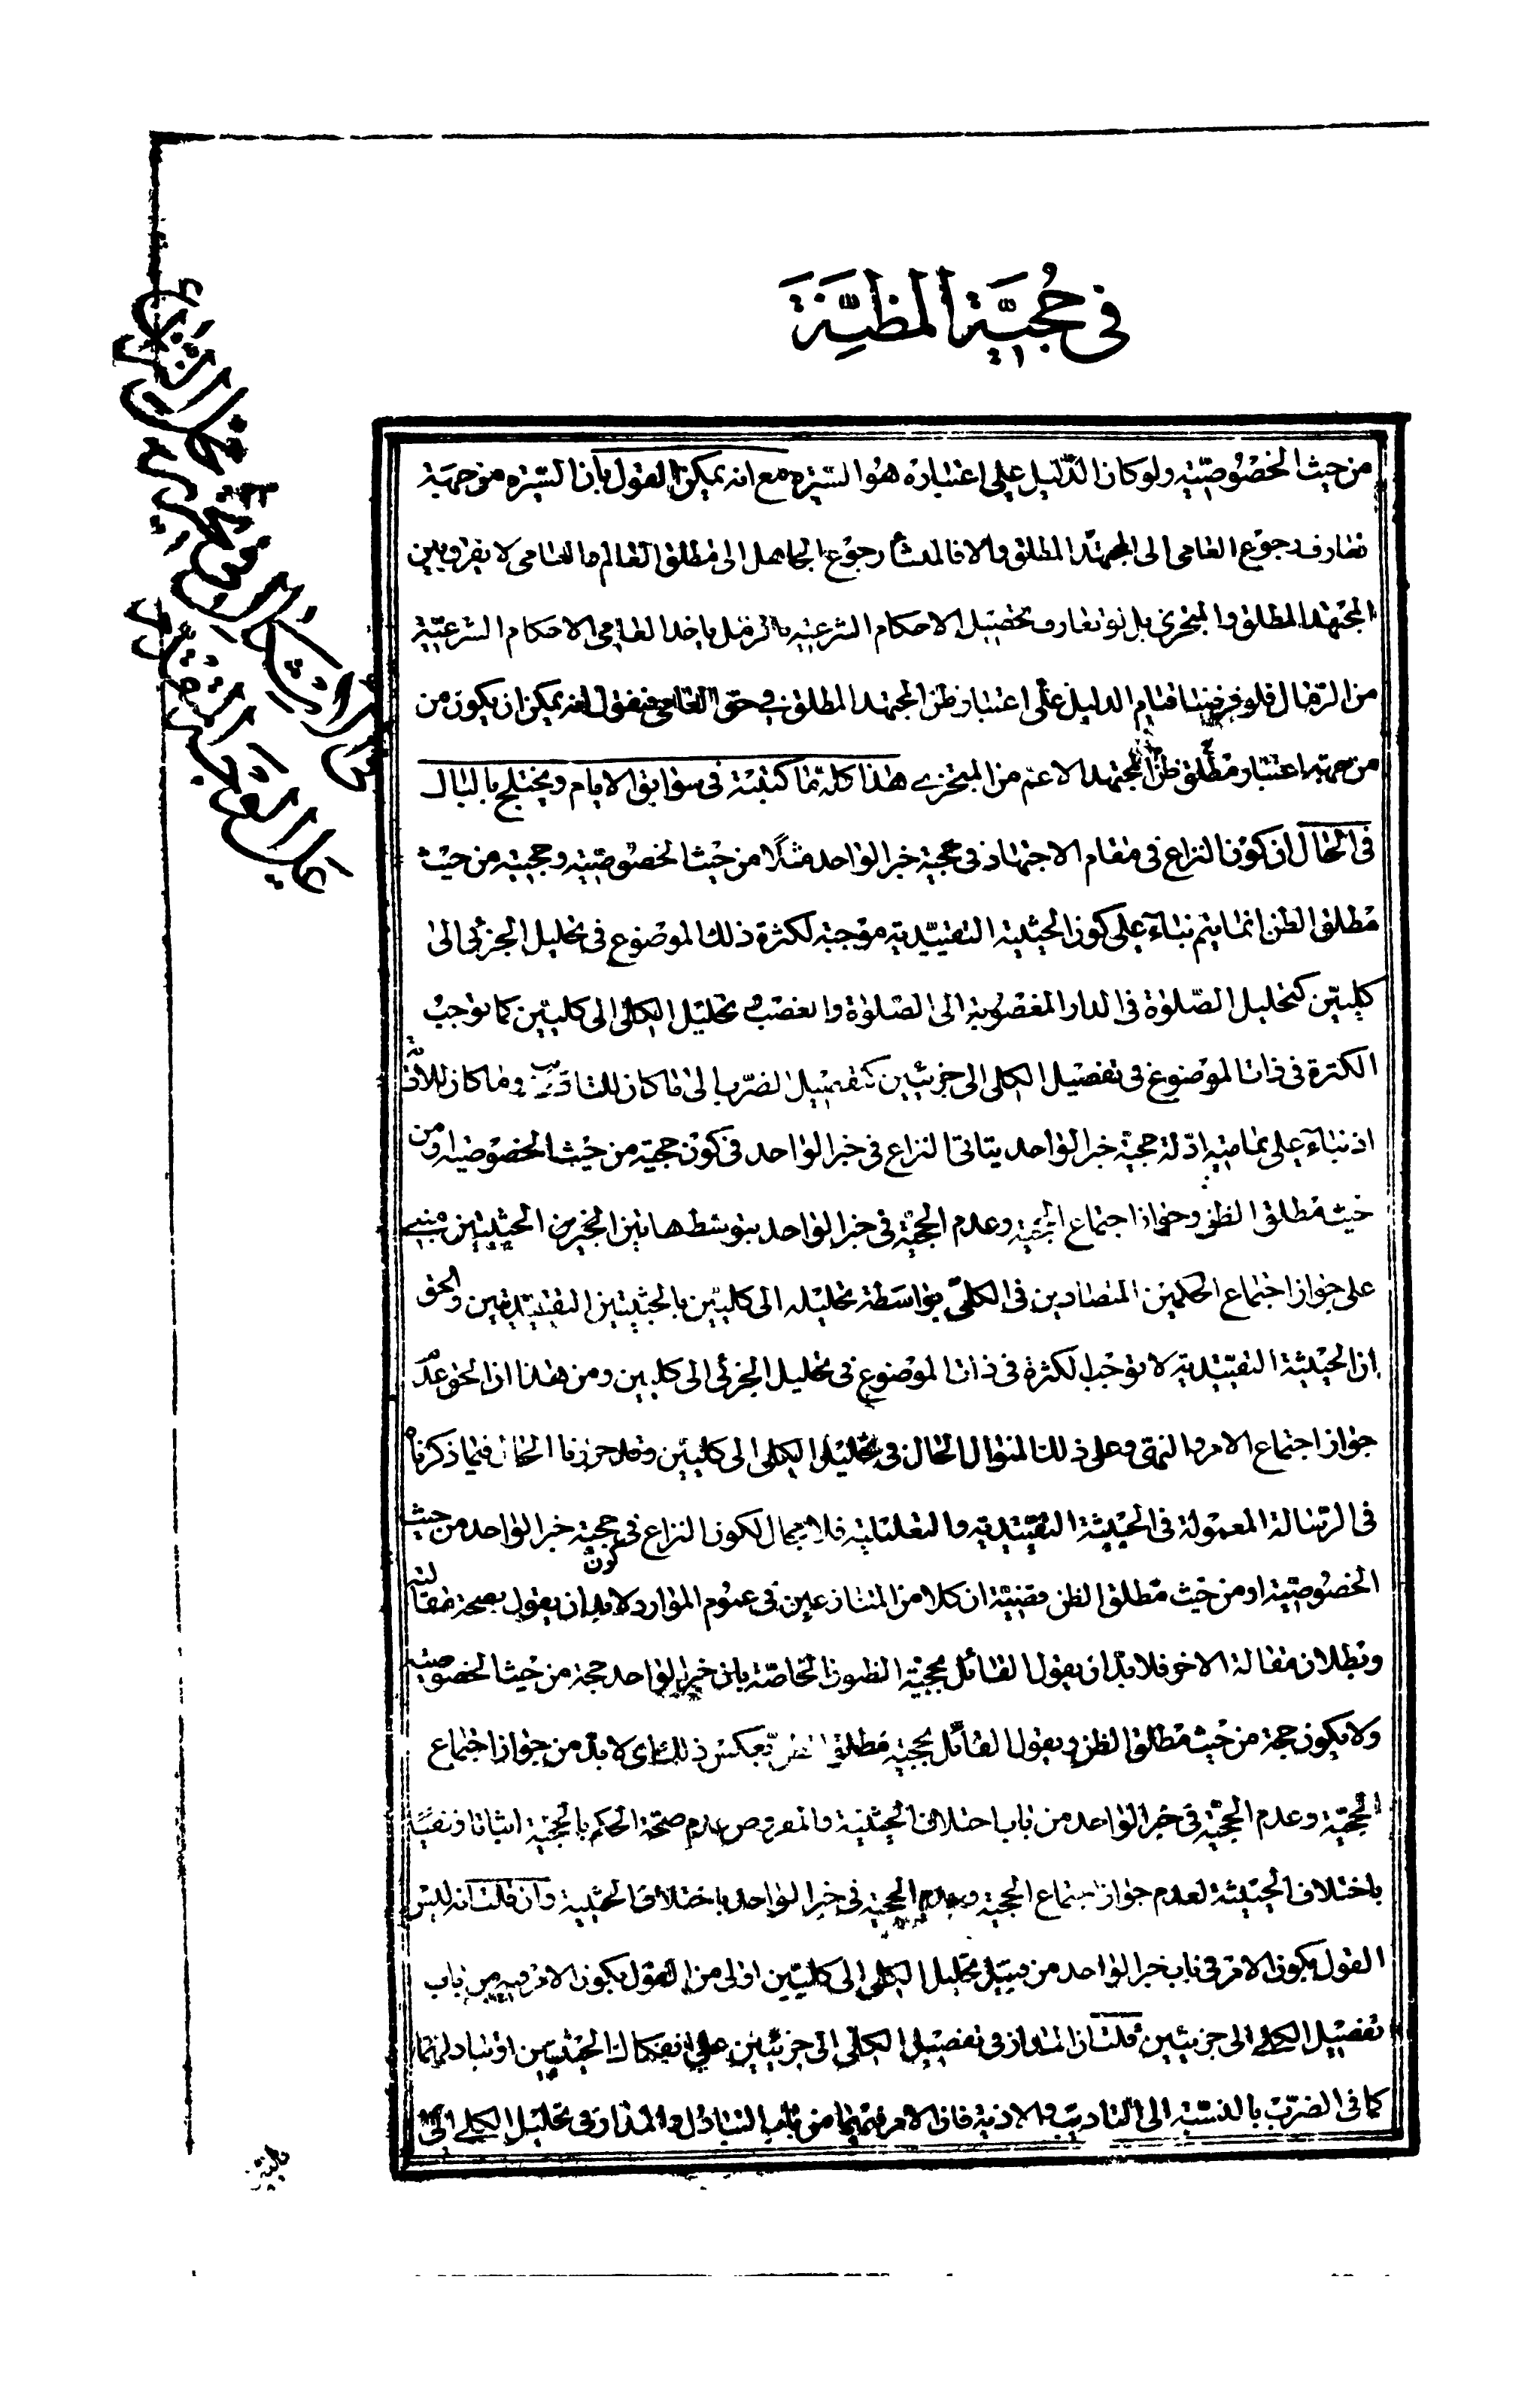 في حُجيّة المظنّة
من حيث الخصوصيّة ولو كان الدّليل على اعتباره هو السّيرة مع انه يمكن القول بان السّيرة من جهة
تعارف رجوع العامى الى المجتهد المطلق والا فالمنشأ رجوع الجاهل الى مطلق العالم والعامى لا يفرق بين
المجتهد المطلق والمتجزى بل لو تعارف تحصيل الاحكام الشرعيّه بالرمل ياخذ العامى الاحكام الشرعيّة
من الرّمال فلو فرضنا قيام الدليل على اعتبار ظن المجتهد المطلق في حق العامى فنقول انه يمكن ان يكون من
من جهة اعتبار مطلق ظن المجتهد الاعم من المتجزى هذا كله مما كتبته في سوابق الايام ويختلج بالبال
في الحال ان كون النزاع في مقام الاجتهاد في حجية خبر الواحد مثلا من حيث الخصوصيّة وحجيته من حيث
مطلق الظن انما يتم بناء على كون الحيثية التقييديّة موجبة لكثرة ذلك الموضوع في تحليل الجزئى الى
كليين كتحليل الصّلوة في الدار المغصوبة الى الصّلوة والغصب و تحليل الكلى الى كليين كما توجب
الكثرة في ذات الموضوع في تفصيل الكلى الى جزئيين كتفصيل الضرب الى ما كان للتاديب وما كان للاذية
اذ بناء على تماميّة ادلة حجية خبر الواحد يتاتى النزاع في خبر الواحد في كون حجية من حيث الخصوصيه ومن
حيث مطلق الظن وجواز اجتماع الحجية وعدم الحجية في خبر الواحد بتوسط هاتين الحيثيتين مبنى
على جواز اجتماع الحكمين المتضادين في الكلى بواسطة تحليله الى كليين بالحيثيتين التقييديتين والحق
ان الحيثية التقييديّة لا توجب الكثرة في ذات الموضوع في تحليل الجزئى الى كليين ومن هذا ان الحق عدم
جواز اجتماع الامر والنهى وعلى ذلك المنوال الحال في تحليل الكلى الى كليين وقد حررنا الحال فيما ذكرناه
في الرّسالة المعمولة في الحيثية التقييديّة والتعليليّة فلا مجال لكون النزاع في حجية خبر الواحد من حيث
الخصوصيّة او من حيث مطلق الظن وقضيّة كون ان كلا من المتنازعين في عموم الموارد لا بد ان يقول بصحة مقالته
وبطلان مقالة الاخر فلا بدّ ان يقول القائل بحجيّة الظنون الخاصّة بان خبر الواحد حجة من حيث الخصوصيّة
ولا يكون حجة من حيث مطلق الظن ويقول القائل بحجية مطلق الظن بعكس ذلك اى لا بدّ من جواز اجتماع
الحجيّة وعدم الحجيّة في خبر الواحد من باب اختلاف الحيثية والمفروض عدم صحة الحكم بالحجية اثباتا ونفيًا
باختلاف الحيثية لعدم جواز اجتماع الحجية وعدم الحجية في خبر الواحد باختلاف الحيثية وان قلت انه ليس
القول بكون الامر في باب خبر الواحد من قبيل تحليل الكلى الى كليّين اولى من القول بكون الامر فيه من باب
تفصيل الكلى الى جزئيين قلت ان المدار في تفصيل الكلى الى جزئيين على انفكاك الحيثيتين او تبادلهما
كما في الضرب بالنسبة الى التاديب والاذية فان الامر فيهما من باب التبادل والمدار في تحليل الكلى الى
كليّين